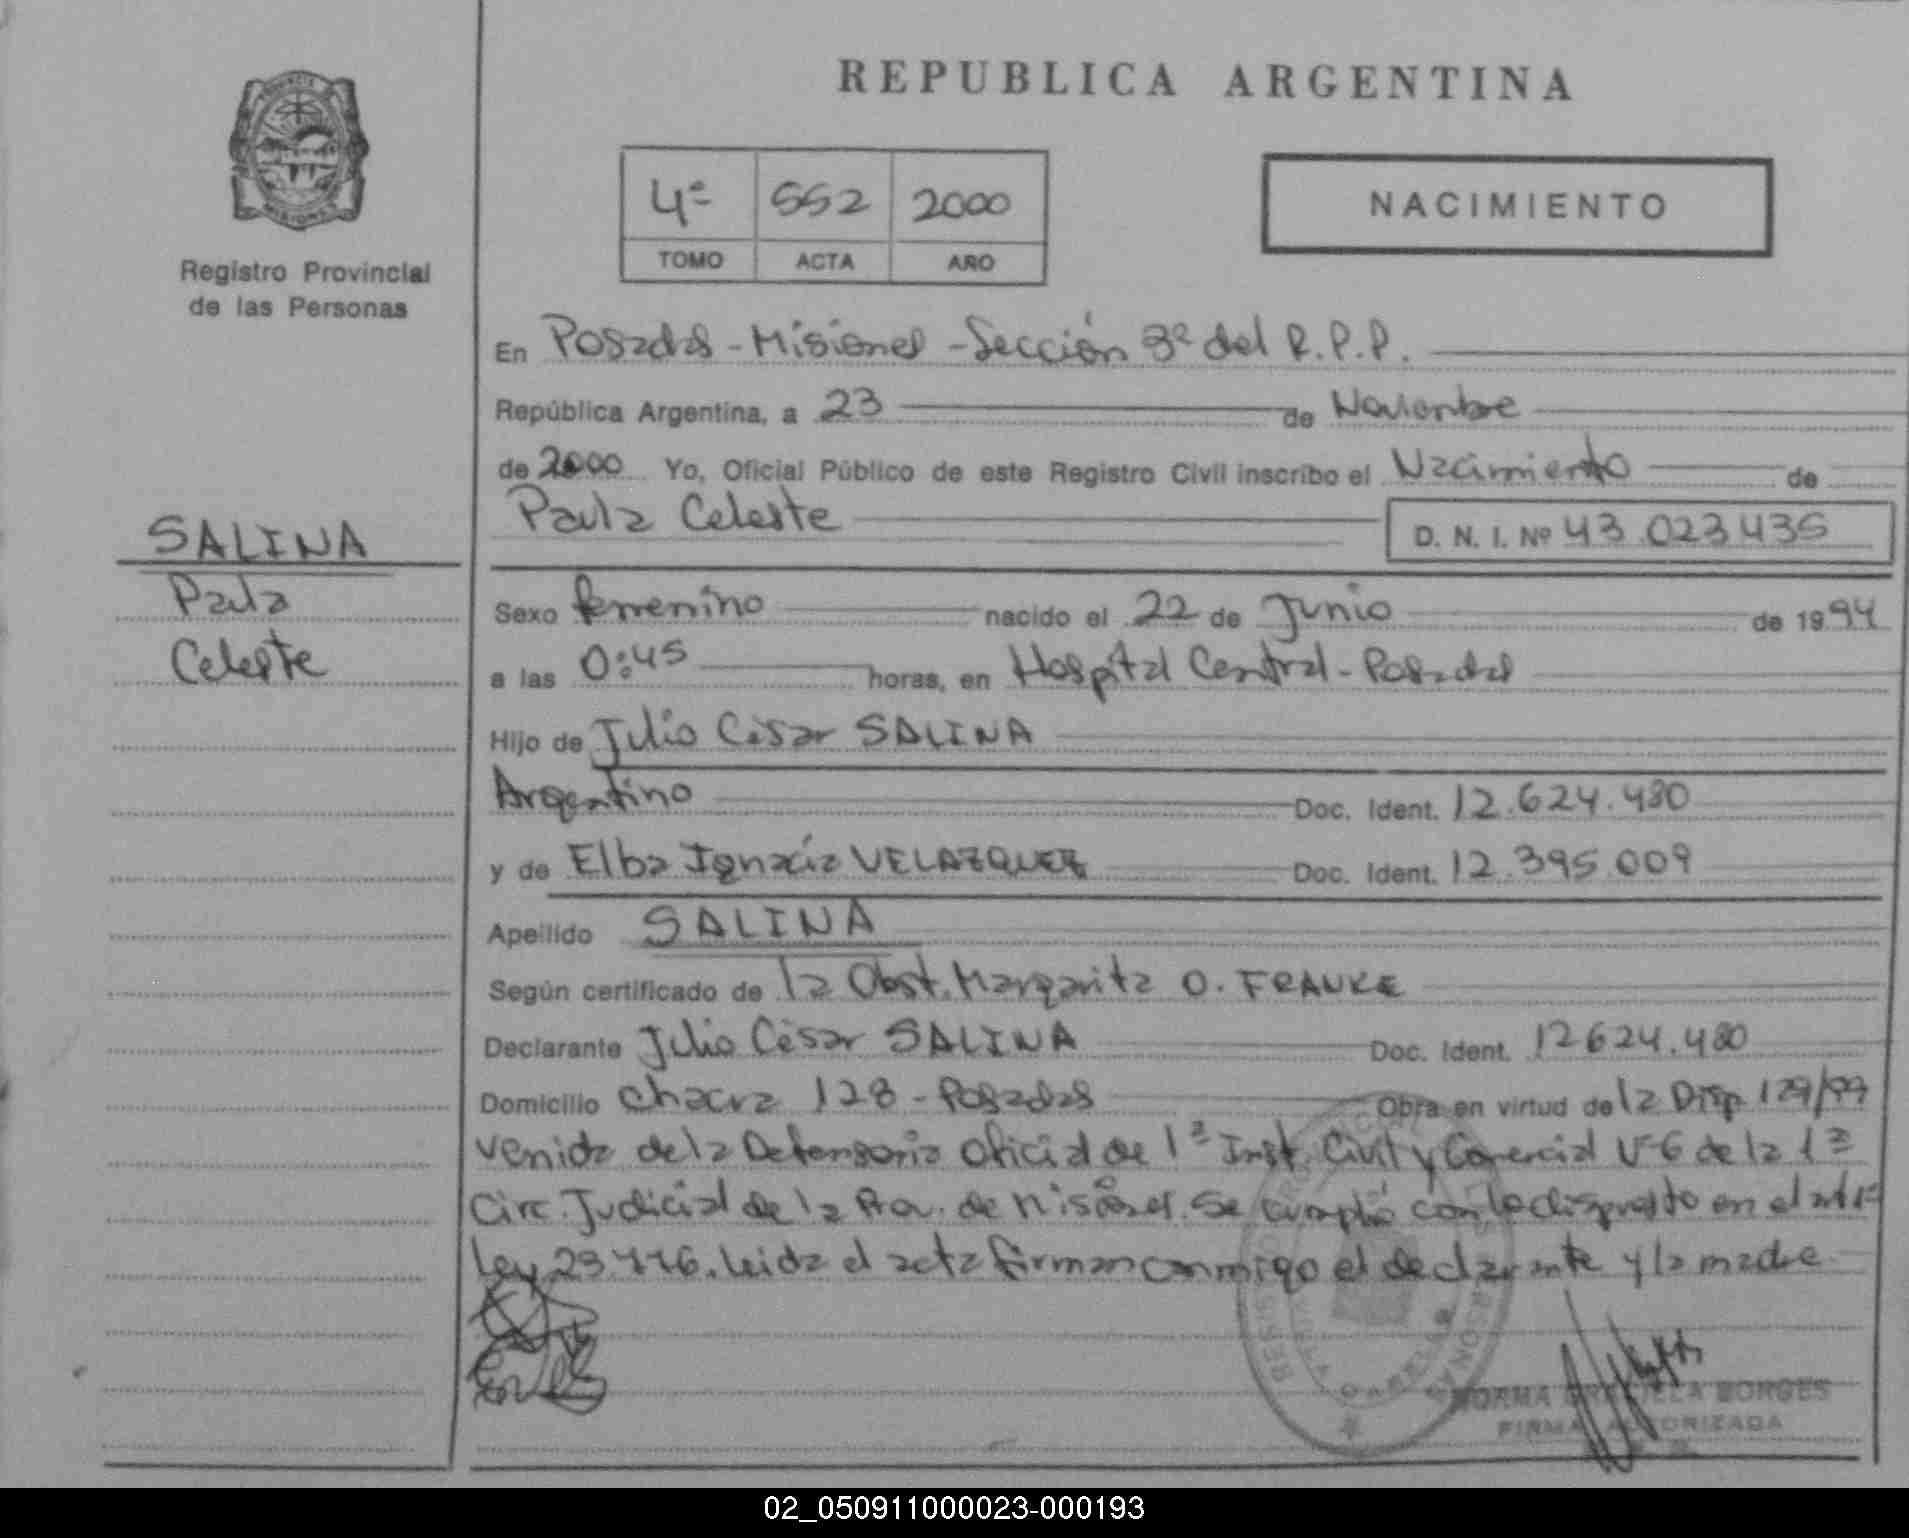 REPUBLICA ARGENTINA
4º 552 2000
TOMO ACTA AÑO
NACIMIENTO
Registro Provincial
de las Personas
En Posadas - Misiones - Sección 3ª del R.P.P.
República Argentina, a 23 de Noviembre
de 2000 Yo, Oficial Público de este Registro Civil inscribo el Nacimiento de
Paula Celeste
D. N. I. Nº 43.023.435
SALINA
Paula
Celeste
Sexo femenino nacido el 22 de Junio de 1994
a las 0:45 horas, en Hospital Central - Posadas
Hijo de Julio César SALINA
Argentino Doc. Ident. 12.624.480
y de Elba Ignacia VELAZQUEZ Doc. Ident. 12.395.009
Apellido SALINA
Según certificado de la Obst. Margarita O. FRANKE
Declarante Julio César SALINA Doc. Ident. 12624.480
Domicilio Chacra 128 - Posadas Obra en virtud de la Disp. 129/99
venida de la Defensoria Oficial de 1ª Inst. Civil y Comercial Nº 6 de la 1ª
Circ. Judicial de la Prov. de Misiones. Se cumplió con lo dispuesto en el art 1º
ley 23.776. leida el acta firman conmigo el declarante y la madre.
NORMA GRACIELA BORGES
FIRMA AUTORIZADA
02_050911000023-000193